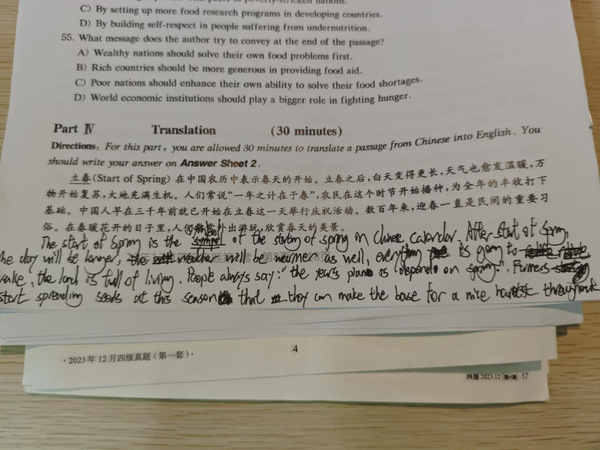 C) By setting up more food research programs in developing countries.
D) By building self-respect in people suffering from undernutrition.
55. What message does the author try to convey at the end of the passage?
A) Wealthy nations should solve their own food problems first.
B) Rich countries should be more generous in providing food aid.
C) Poor nations should enhance their own ability to solve their food shortages.
D) World economic institutions should play a bigger role in fighting hunger.
Part Ⅳ Translation (30 minutes)
Directions: For this part, you are allowed 30 minutes to translate a passage from Chinese into English. You
should write your answer on Answer Sheet 2.
立春(Start of Spring) 在中国农历中表示春天的开始。立春之后,白天变得更长,天气也愈发温暖,万
物开始复苏,大地充满生机。人们常说“一年之计在于春”,农民在这个时节开始播种,为全年的丰收打下
基础。中国人早在三千年前就已开始在立春这一天举行庆祝活动。数百年来,迎春一直是民间的重要习
俗。在春暖花开的日子里,人们外出游玩,欣赏春天的美景。
The start of spring is the symbol of the starting of spring in Chinese calendar. After start of spring,
the day will be longer, weather will be warmer as well, everything is going to
wake, the land is full of living. People always say: "the year's plan is depend on spring". Farmers
start spreading seeds at this season that they can make the base for a nice harvest throughout
·2023年12月四级真题(第一套)·
4
四级 2023·12 17